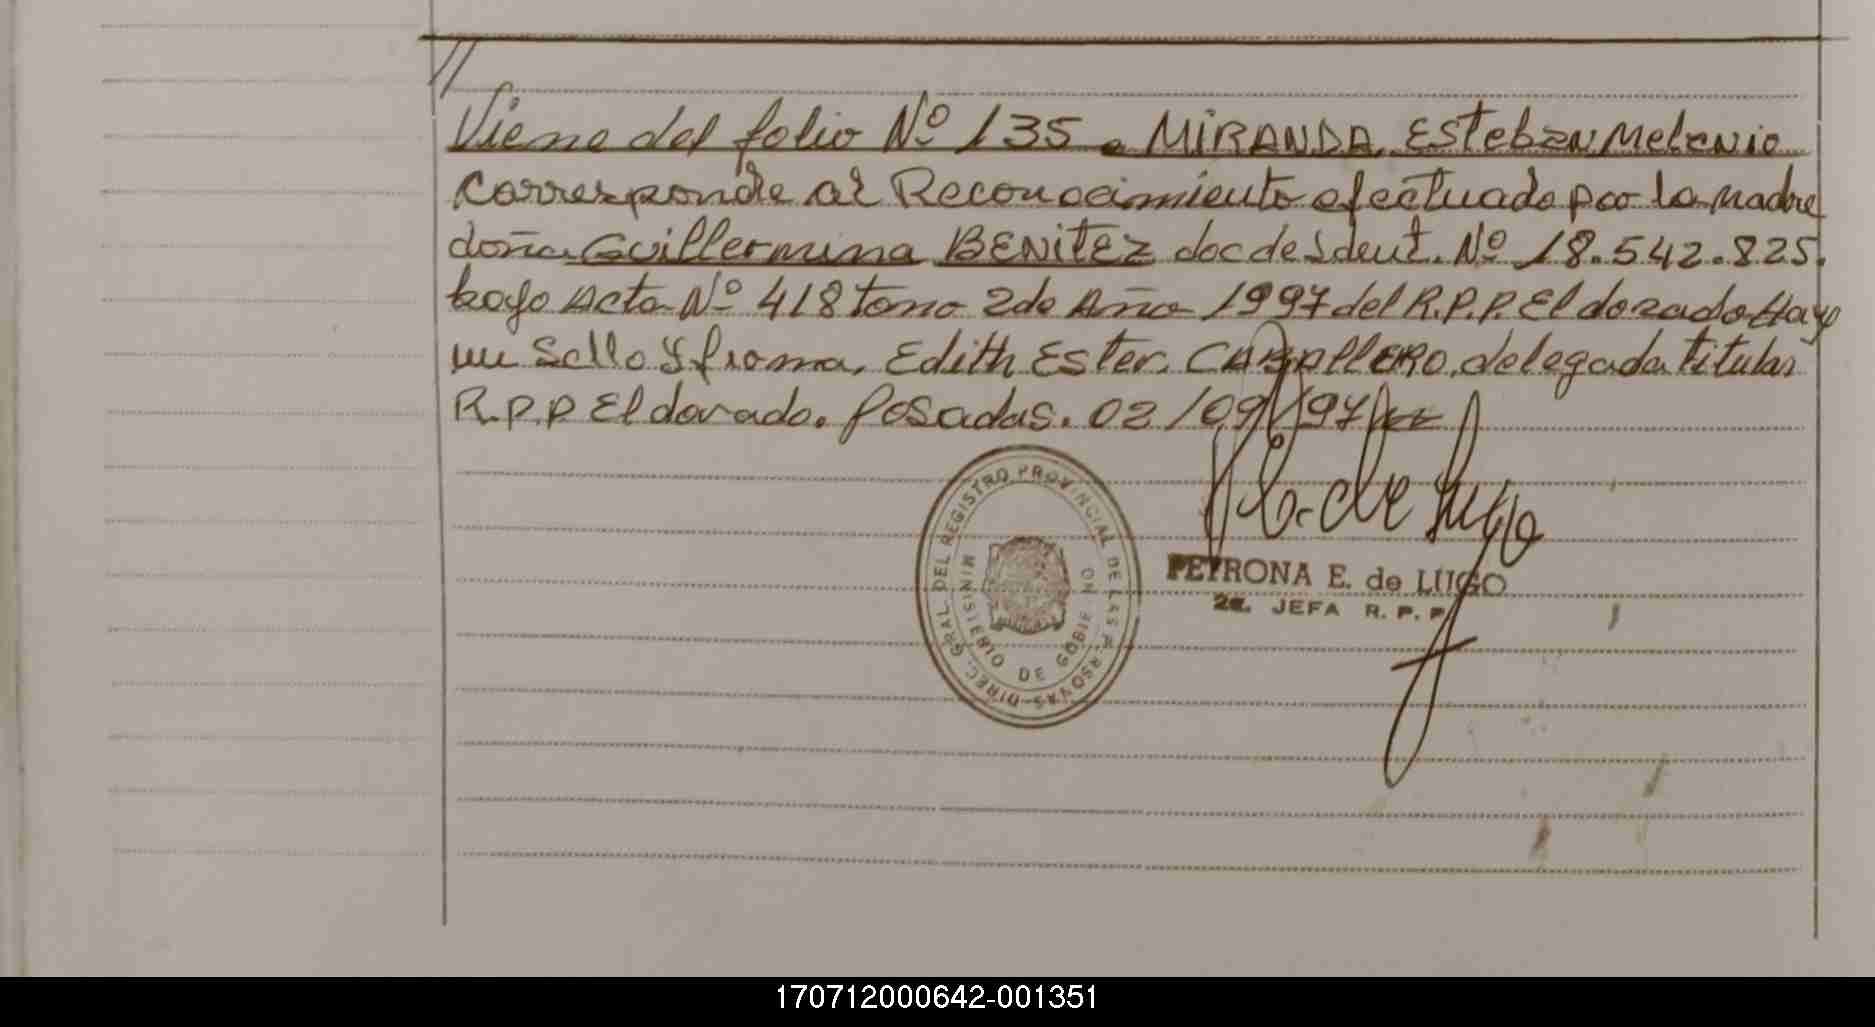 //
Viene del folio Nº 135. MIRANDA, Esteban Melanio
Corresponde al Reconocimiento efectuado por la madre
doña Guillermina BENITEZ doc de Ident. Nº 18.542.825.
bajo Acta Nº 418 tomo 2 de Año 1997 del R.P.P. Eldorado Hay
un Sello y firma, Edith Ester, CABALLERO, delegada titular
R.P.P Eldorado. Posadas. 02/09/97
E. de Lugo
PETRONA E. de LUGO
2a. JEFA R. P. P
DIREC. GRAL DEL REGISTRO PROVINCIAL DE LAS PERSONAS
MINISTERIO DE GOBIERNO
170712000642-001351